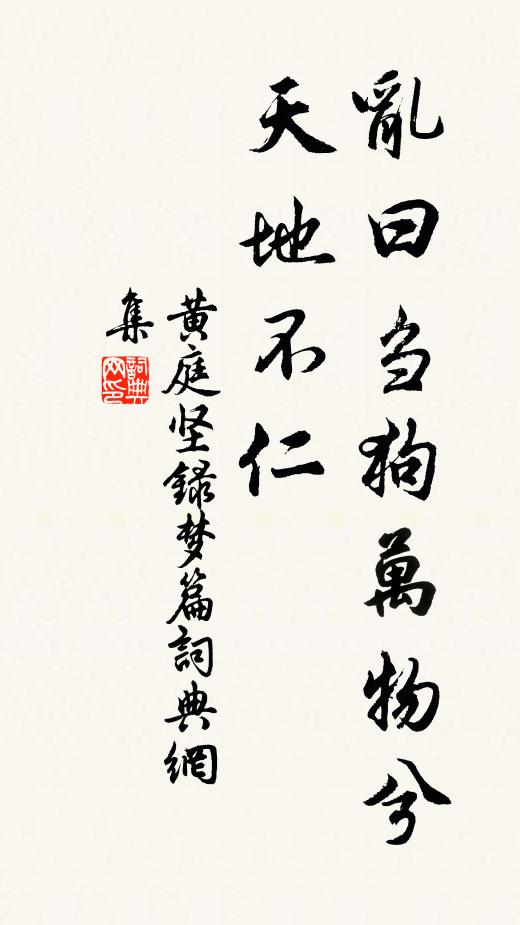 亂曰芻狗萬物兮
天地不仁
黄庭坚録梦篇詞典網
集
詞典网印